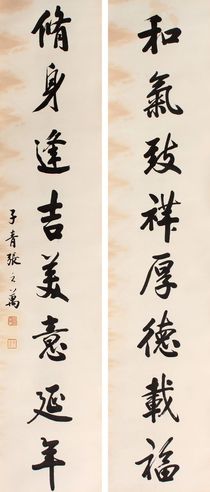 和氣致祥厚德載福
脩身逢吉美意延年
子青張之萬